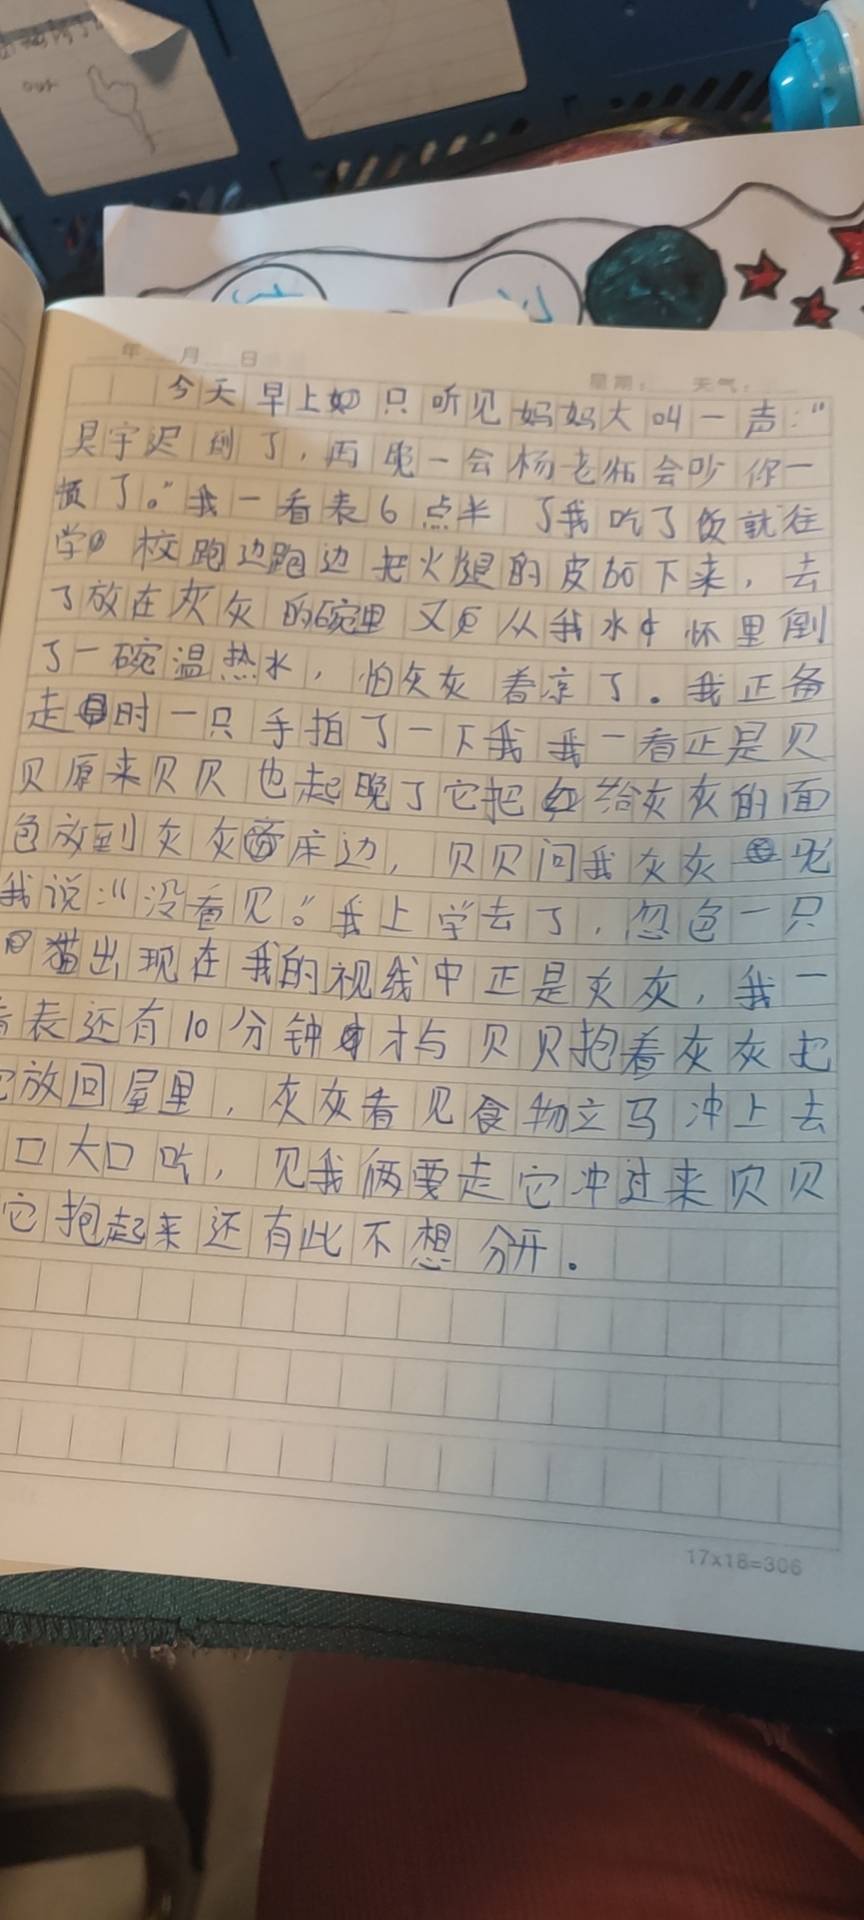 our
年 月 日
星期： 天气：
今天早上只听见妈妈大叫一声：“
昊宇迟到了，再晚一会杨老师会吵你一
顿了。”我一看表6点半了我吃了饭就往
学校跑边跑边把火腿的皮下来，去
了放在灰灰的碗里又从我水怀里倒
了一碗温热水，怕灰灰着凉了。我正备
走时一只手拍了一下我我一看正是贝
贝原来贝贝也起晚了它把给灰灰的面
包放到灰灰床边，贝贝问我灰灰
我说：“没看见。”我上学去了，忽色一只
猫出现在我的视线中正是灰灰，我一
看表还有10分钟才与贝贝抱着灰灰把
它放回屋里，灰灰看见食物立马冲上去
口大口吃，见我俩要走它冲过来贝贝
它抱起来还有此不想分开。
17x18=306